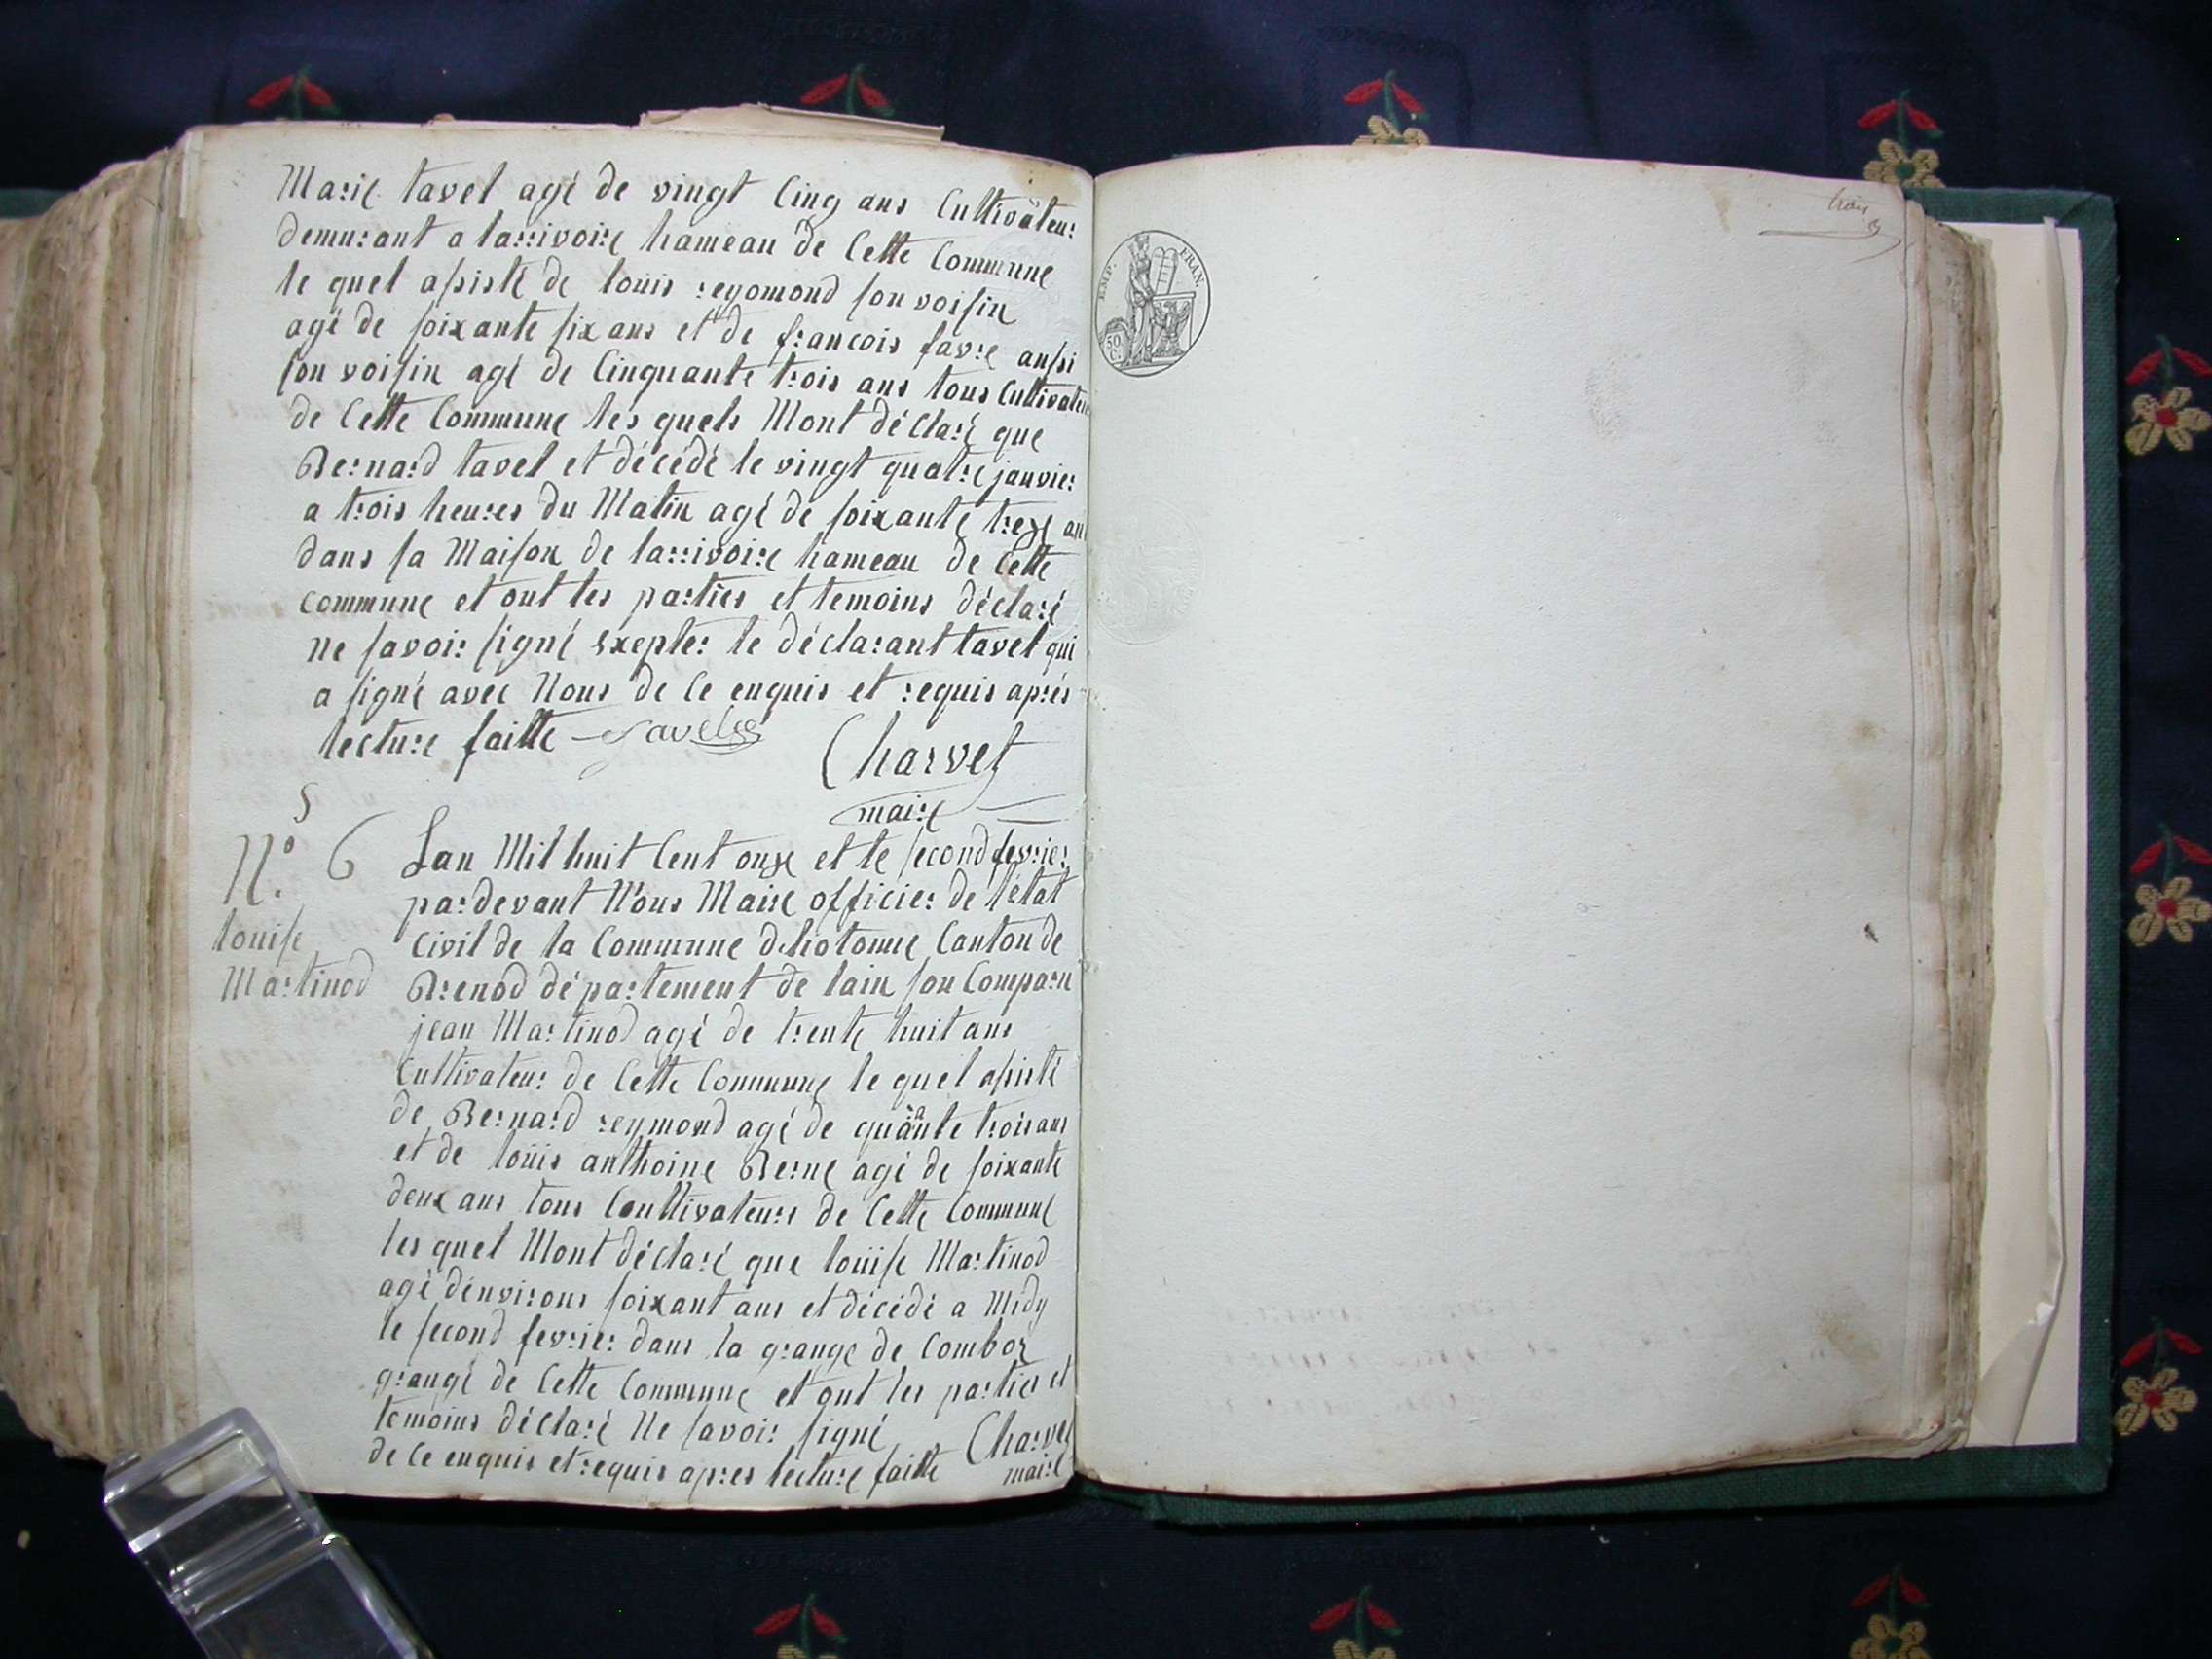 Marie tavel agé de vingt Cinq ans Cultivateur
demurant a larrivoire hameau de Cette Commune
le quel asisté de louis reyomond son voisin
agé de soixante six ans et de francois favre aussi
son voisin agé de Cinquante trois ans tous Cultivateur
de Cette Commune les quels Mont déclaré que
Bernard tavel et décédé le vingt quatre janvier
a trois heures du Matin agé de soixante treze an
dans sa Maison de larrivoire hameau de Cette
commune et ont les parties et temoins déclaré
ne savoir signé exepter le déclarant tavel qui
a signé avec Nous de Ce enquis et requis aprés
lecture faitte Tavel
Charvet
maire
5
N.° 6
louise
Martinod
Lan Mil huit Cent onze et le second fevrier
pardevant Nous Maire officier de létat
Civil de la Commune Canton de
Brenod département de lain son Comparu
jean Martinod agé de trente huit ans
Cultivateur de Cette Commune le quel asisté
de Bernard reymond agé de quarante trois ans
et de loüis anthoine Berne agé de soixante
deux ans tous Coultivateurs de Cette Commune
les quel Mont déclaré que loüise Martinod
agé dénvirons soixant ans et décédé a Midy
le second fevrier dans la grange de Comboz
grange de Cette Commune et ont les parties et
temoins déclaré Ne savoir signé
de Ce enquis et requis apres lecture faitte
Charvet
maire
trois
EMP. FRAN.
50
C.